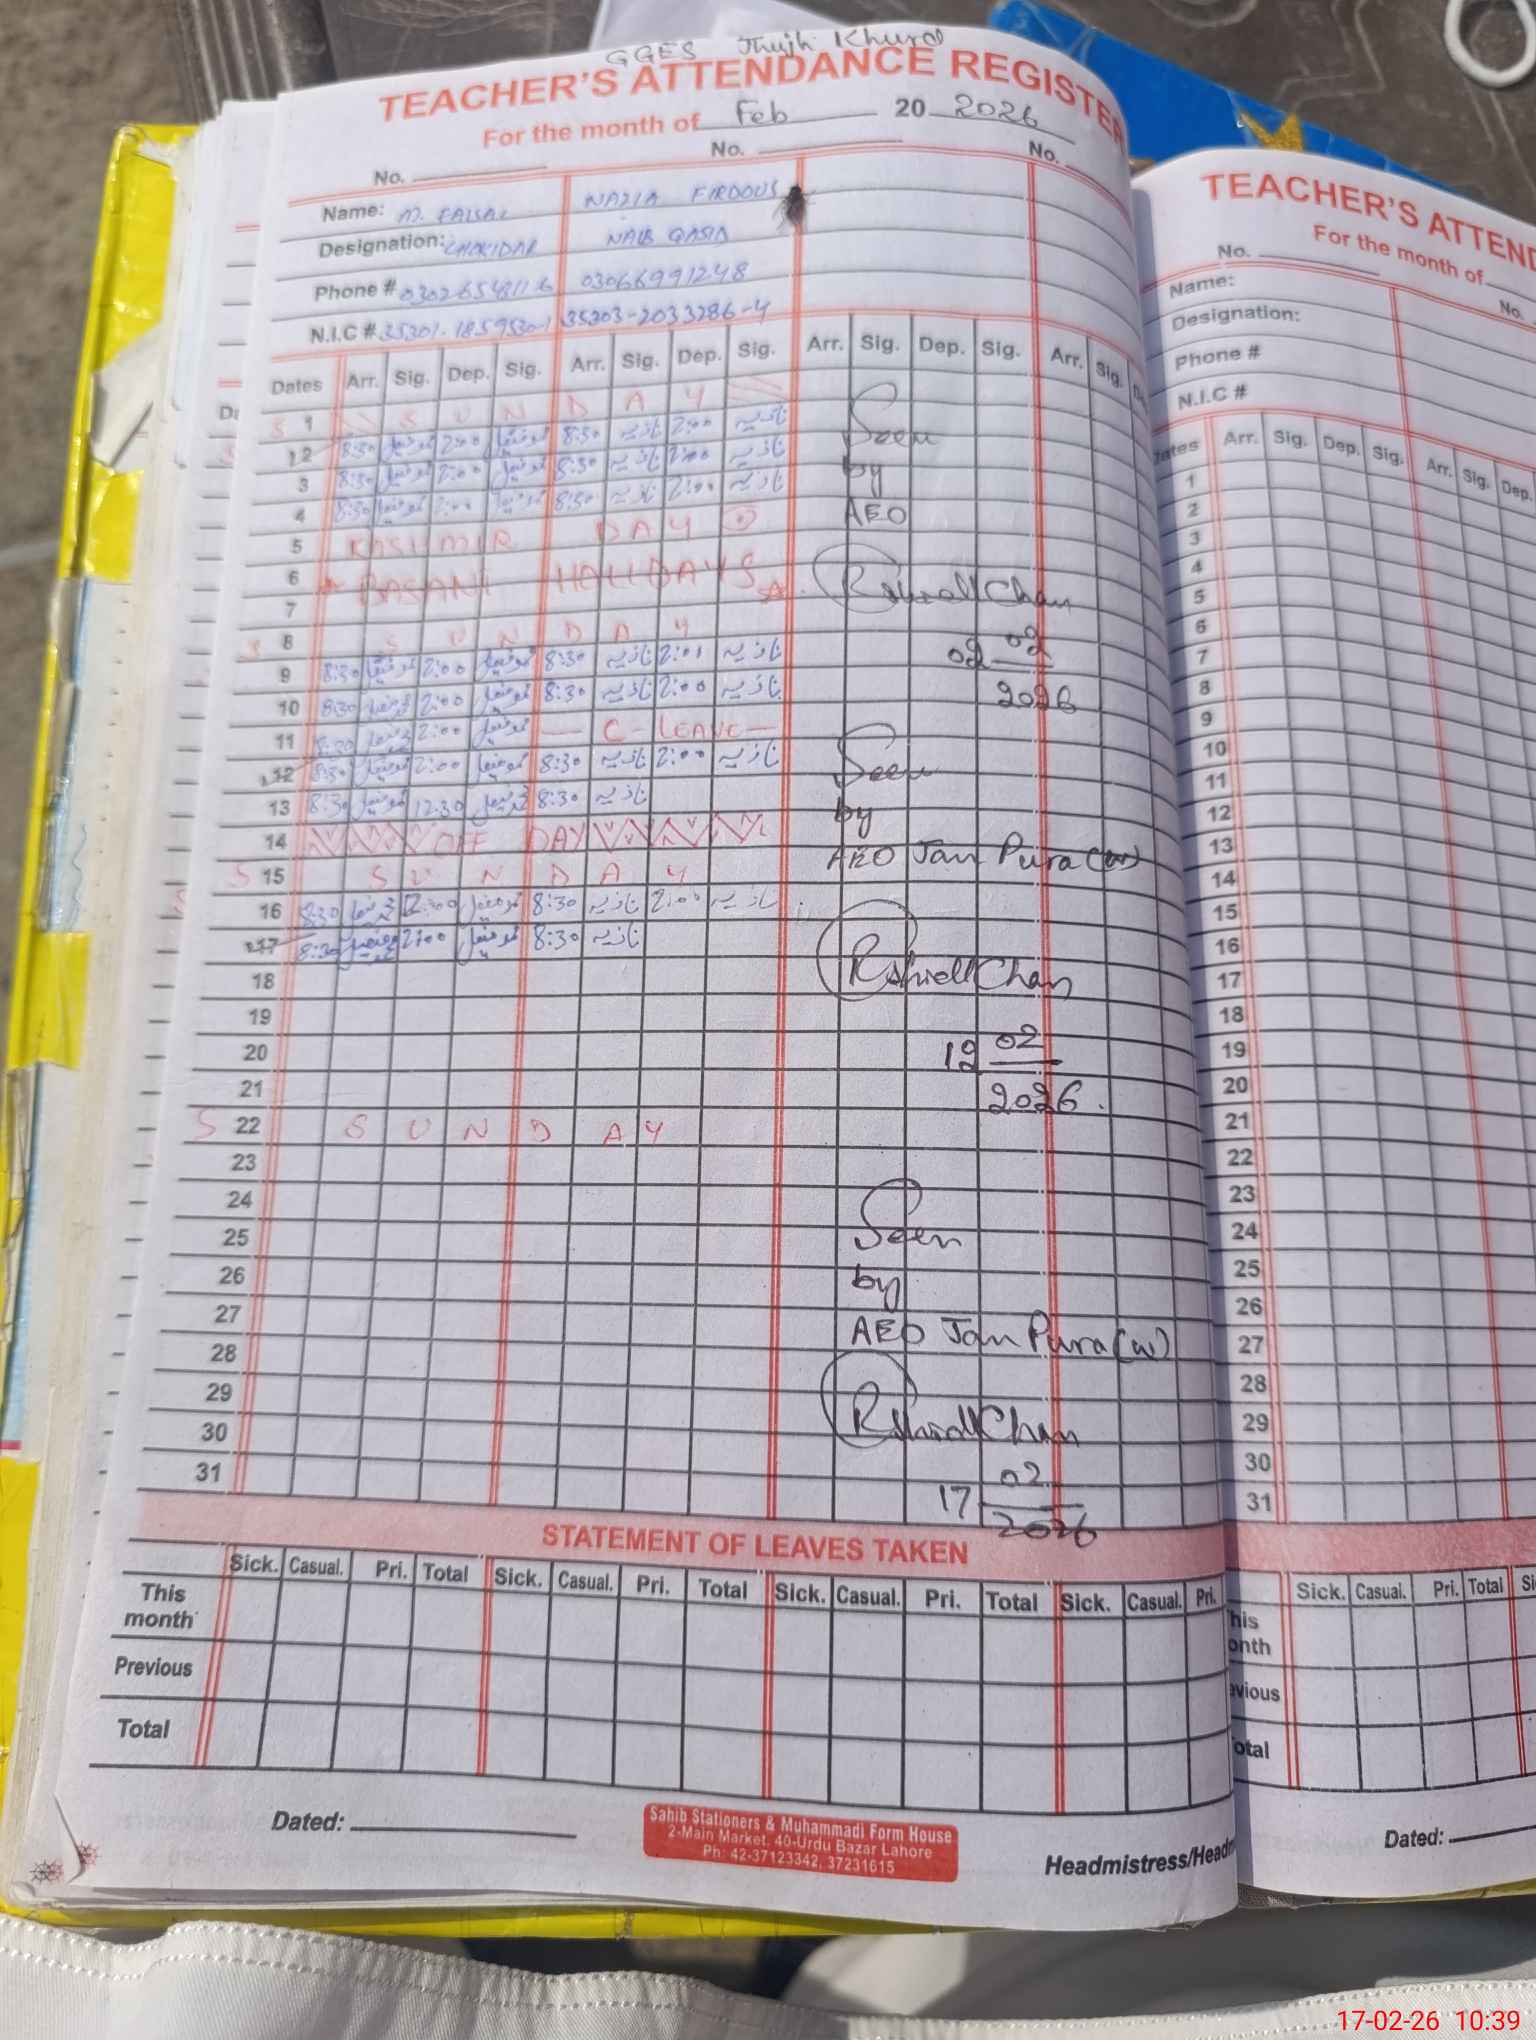 GGES Jhujh Khurd
TEACHER'S ATTENDANCE REGISTER
For the month of Feb 20 2026
No. No. No.
Name: M. FAISAL NAZIA FIRDOUS
Designation: CHOKIDAR NAIB QASID
Phone # 03066991248
N.I.C # 35301-1859530-1 35303-2033286-4
Dates Arr. Sig. Dep. Sig. Arr. Sig. Dep. Sig. Arr. Sig. Dep. Sig. Arr. Sig.
S 1 S U N D A Y
2 8:30 2:00 8:30 نازیہ 2:00 نازیہ
3 8:30 2:00 8:30 نازیہ 2:00 نازیہ
4 8:30 2:00 8:30 نازیہ 2:00 نازیہ
5 KASHMIR DAY
6 BASANT HALIDAYS
7
S 8 S U N D A Y
9 8:30 2:00 8:30 نازیہ 2:00 نازیہ
10 8:30 2:00 8:30 نازیہ 2:00 نازیہ
11 8:30 2:00 — C - LEAVE —
12 8:30 2:00 8:30 نازیہ 2:00 نازیہ
13 8:30 12:30 8:30 نازیہ
14 OFF DAY
S 15 S U N D A Y
16 8:30 2:00 8:30 نازیہ 2:00 نازیہ
17 8:30 2:00 8:30 نازیہ
18
19
20
21
S 22 S U N D A Y
23
24
25
26
27
28
29
30
31
Seen
by
AEO
02 02
2026
Seen
by
AEO Jan Pura (w)
12 02
2026.
Seen
by
AEO Jan Pura (w)
17 02
2026
STATEMENT OF LEAVES TAKEN
Sick. Casual. Pri. Total Sick. Casual. Pri. Total Sick. Casual. Pri. Total Sick. Casual. Pri.
This
month
Previous
Total
Dated:
Sahib Stationers & Muhammadi Form House
2-Main Market. 40-Urdu Bazar Lahore
Ph: 42-37123342, 37231615
Headmistress/Headm
TEACHER'S ATTEND
For the month of
No. No.
Name:
Designation:
Phone #
N.I.C #
Dates Arr. Sig. Dep. Sig. Arr. Sig. Dep.
1
2
3
4
5
6
7
8
9
10
11
12
13
14
15
16
17
18
19
20
21
22
23
24
25
26
27
28
29
30
31
Sick. Casual. Pri. Total Si
his
onth
evious
otal
Dated:
17-02-26 10:39